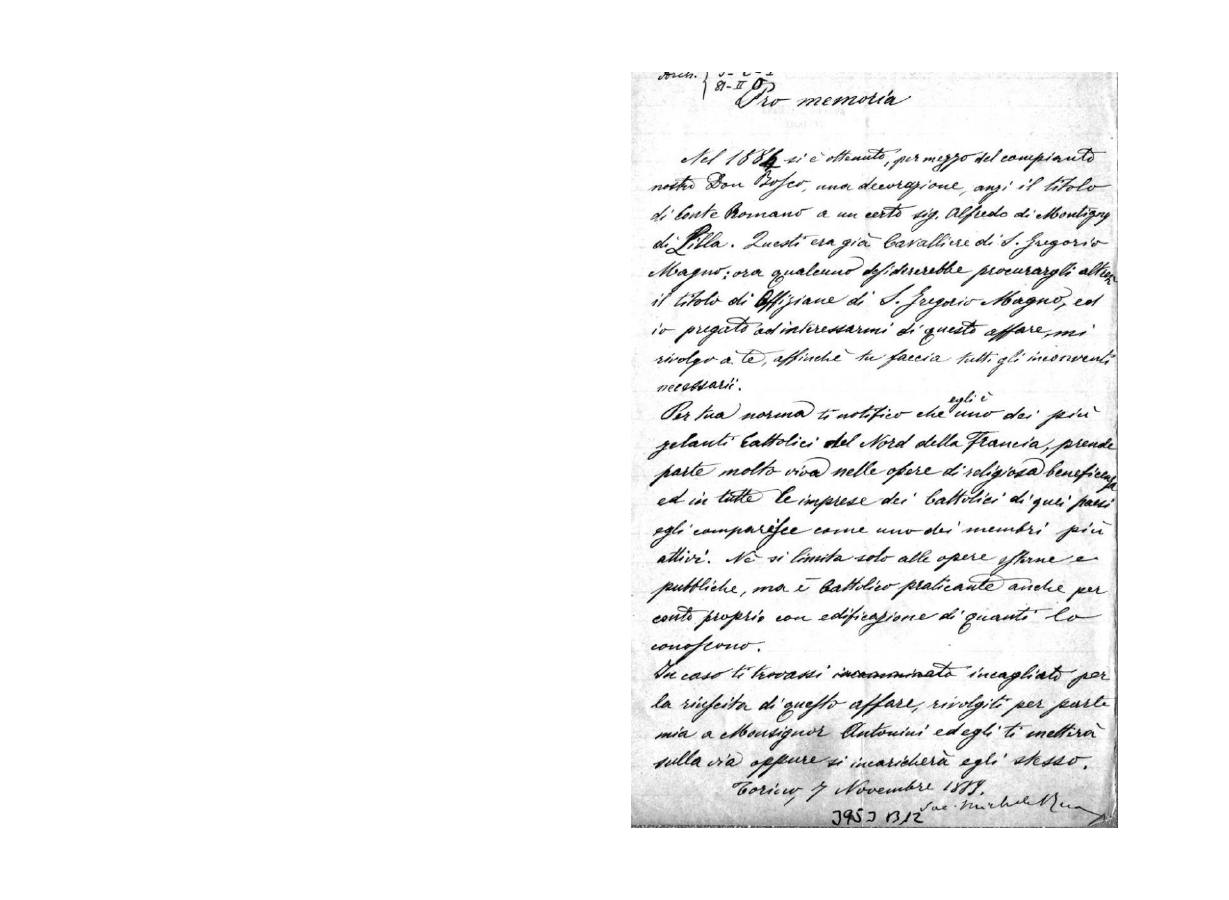 Arch.
81-II
Pro memoria
Nel 1884 si è ottenuto, per mezzo del compianto
nostro Don Bosco, una decorazione, anzi il titolo
di Conte Romano a un certo sig. Alfredo di Montigny
di Lilla. Questi era già Cavalliere di S. Gregorio
Magno; ora qualcuno desidererebbe procurargli altresì
il titolo di Offiziane di S. Gregorio Magno, ed
io pregato ad interessarmi di questo affare, mi
rivolgo a te, affinchè tu faccia tutti gli incombenti
necessarii.
Per tua norma ti notifico che egli è uno dei più
zelanti Cattolici del Nord della Francia, prende
parte molto viva nelle opere di religiosa beneficenza
ed in tutte le imprese dei Cattolici di quei paesi
egli comparisce come uno dei membri più
attivi. Nè si limita solo alle opere esterne e
pubbliche, ma è Cattolico praticante anche per
conto proprio con edificazione di quanti lo
conoscono.
In caso ti trovassi incamminato incagliato per
la riuscita di questo affare, rivolgiti per parte
mia a Monsignor Antonini ed egli ti metterà
sulla via oppure si incaricherà egli stesso.
Torino, 7 Novembre 1889.
Sac. Michele Rua
3953 B12